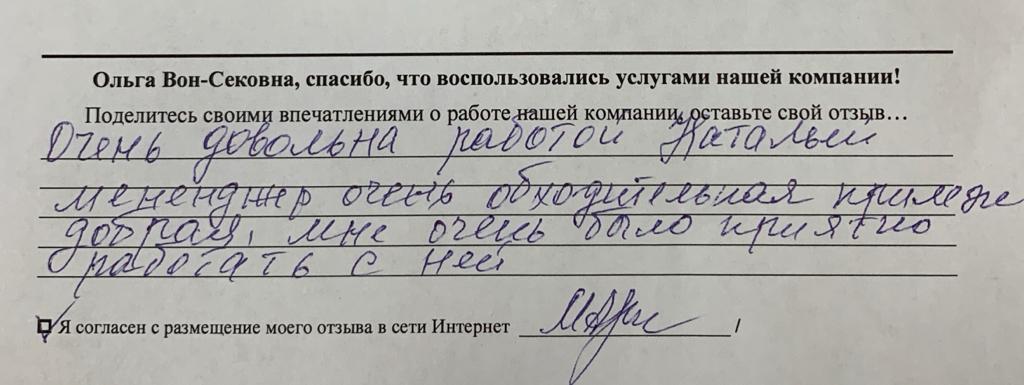 Ольга Вон-Сековна, спасибо, что воспользовались услугами нашей компании!
Поделитесь своими впечатлениями о работе нашей компании, оставьте свой отзыв…
Очень довольна работой Натальи
мененджер очень обходительная
добрая, мне очень было приятно
работать с ней
Я согласен с размещение моего отзыва в сети Интернет /